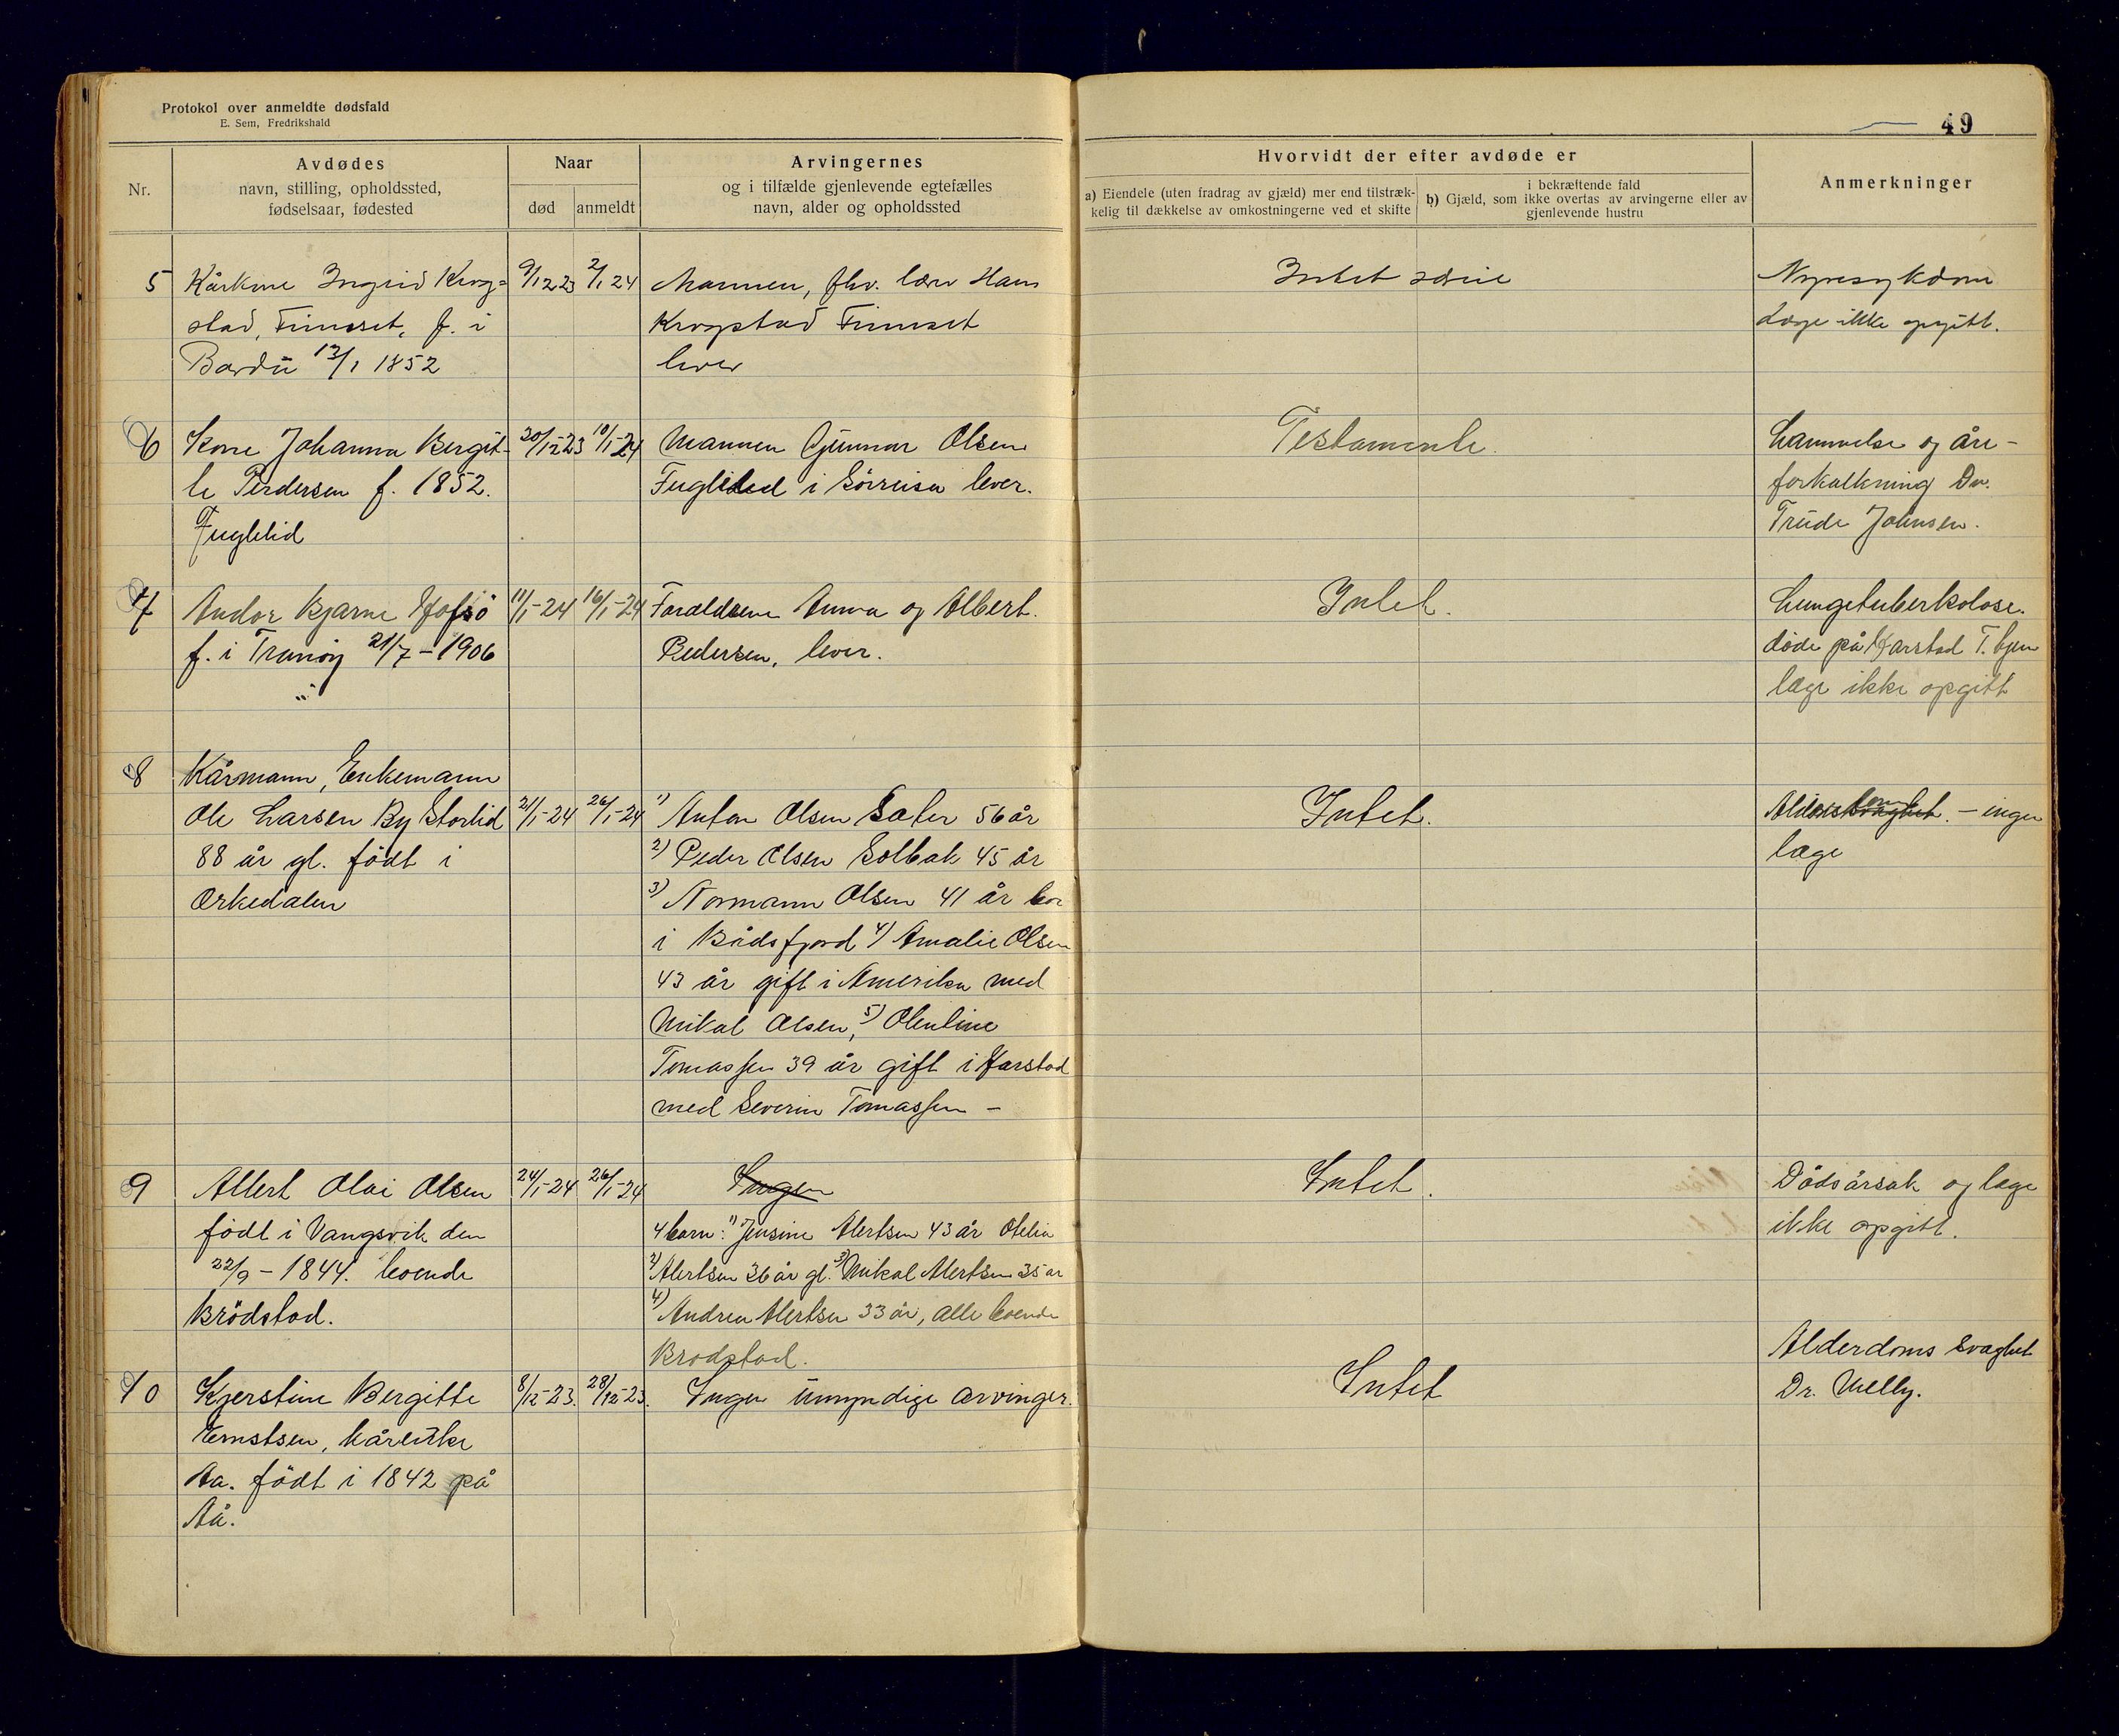 Protokol over anmeldte dødsfald
E. Sem, Fredrikshald
49
Nr.
Avdødes
navn, stilling, opholdssted,
fødselsaar, fødested
Naar
død
anmeldt
Arvingernes
og i tilfælde gjenlevende egtefælles
navn, alder og opholdssted
Hvorvidt der efter avdøde er
a) Eiendele (uten fradrag av gjæld) mer end tilstræk-
kelig til dækkelse av omkostningerne ved et skifte
i bekræftende fald
b) Gjæld, som ikke overtas av arvingerne eller av
gjenlevende hustru
Anmerkninger
5 Kårkone Ingrid Krog=
stad, Finnset, f. i
Bardu 12/1 1852
9/12 23 2/1 24
Mannen, fhv. Hans
Krogstad Finnset
lever
Intet
Nyresykdom
Læge ikke opgitt.
6 Kone Johanna Bergit-
te Perdersen f. 1852.
Fuglelid
20/12-23 10/1-24
Mannen Gunnar Olsen
Fuglelid i Sörreisa lever.
Testamente
Lammelse og åre-
forkalkning Dr.
Trude Johnsen.
7 Andor Bjarne Hofsö
f. i Tranöy 21/7-1906
11/1-24 16/1-24
Foraldrene Anna og Albert
Pedersen, lever.
Intet.
Lungetuberkolose.
döde på Harstad T. hjem
læge ikke opgitt
8 Kårmann, Enkemann
Ole Larsen By Storlid
88 år gl. födt i
Orkedalen
21/1-24 26/1-24
1) Anton Olsen Sater 56 år
2) Peder Olsen Solbak 45 år
3) Normann Olsen 41 år bor
i Bådsfjord 4) Amalie Olsen
43 år gift i Amerika med
Mikal Olsen, 5) Olentine
Tomassen 39 år gift i Harstad
med Severin Tomassen -
Intet.
- ingen
læge
9 Albert Olai Olsen
födt i Vangsvik den
22/9-1844. boende
Brödstad.
24/1-24 26/1-24
Ingen
4 barn: 1) Jensine Alertsen 43 år Otelia
2) Alertsen 36 år gl. 3) Mikal Alertsen 35 år
4) Andrea Alertsen 33 år, alle boende
Brodstad.
Intet.
Dödsårsak og læge
ikke opgitt.
10 Kjerstine Bergitte
Ernstsen, kårenke
Aa. födt i 1842 på
Aå.
8/12-23. 28/12-23.
Ingen umyndige arvinger.
Intet
Alderdoms svaghet
Dr. Uelly.